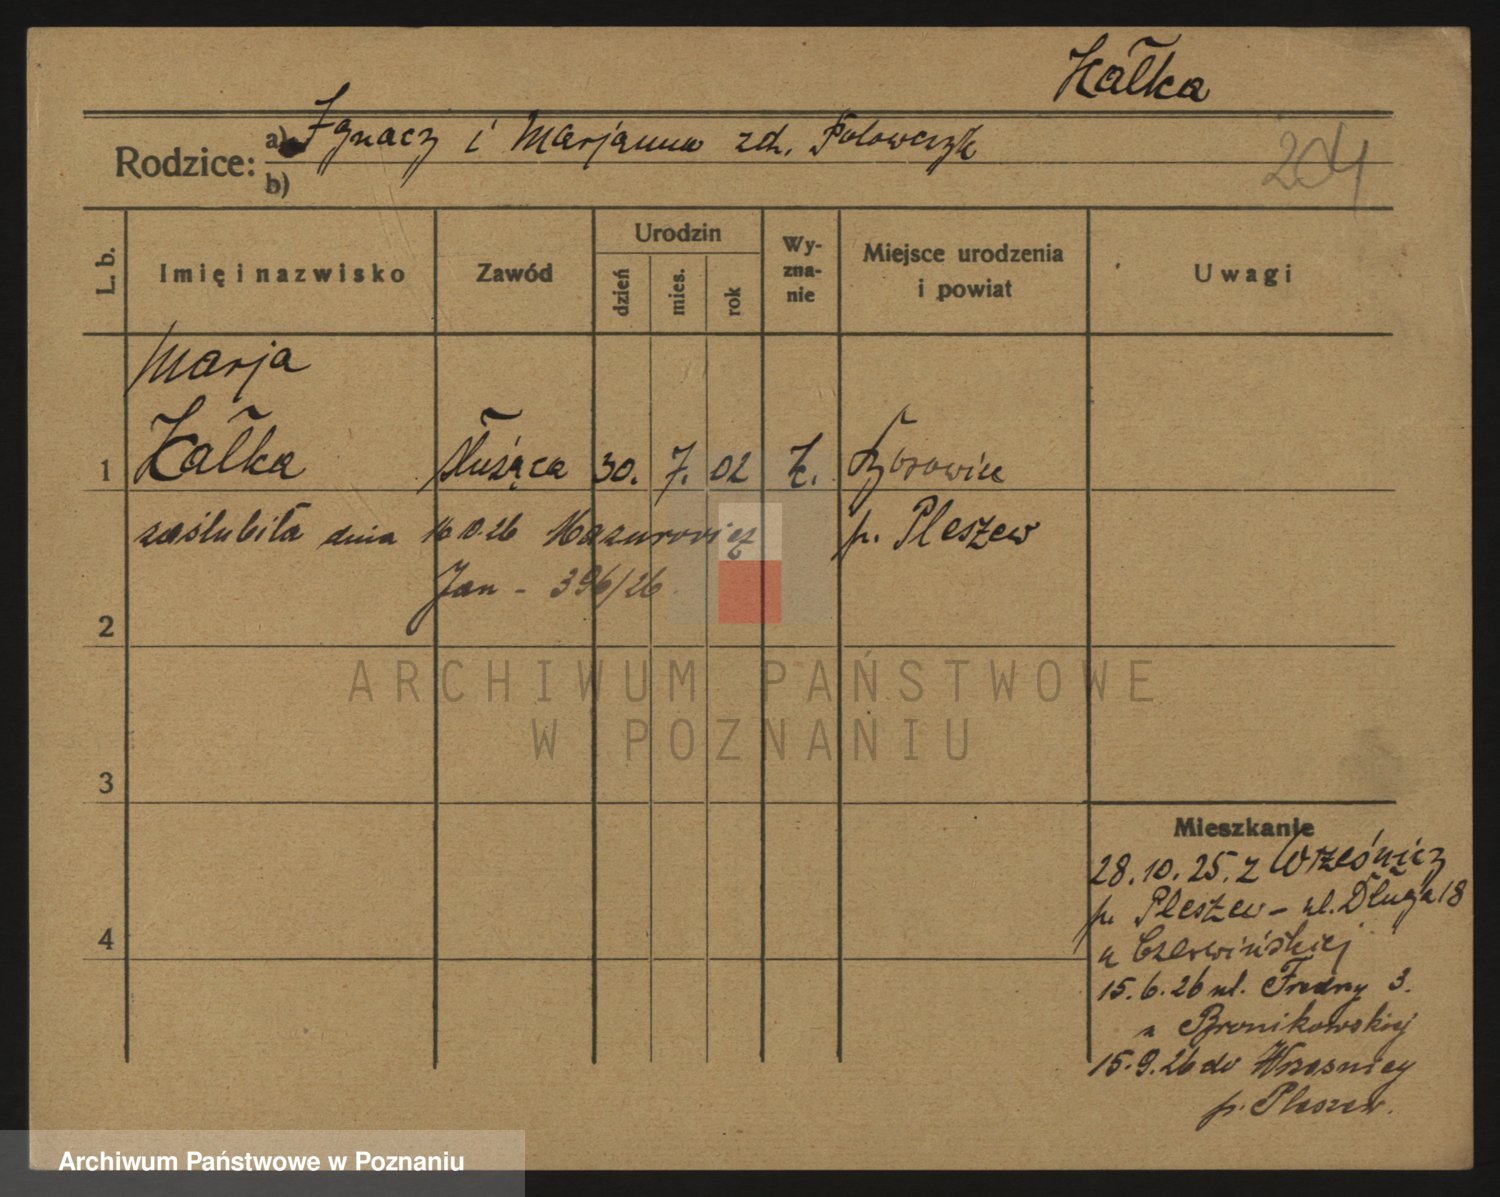 Kałka
Rodzice: a) Ignacz i Marjanna zd. Połowczyk
b)
204
L. b. Imię i nazwisko Zawód Urodzin dzień mies. rok Wyznanie Miejsce urodzenia i powiat Uwagi
Marja
1 Kałka służąca 30. 7. 02 k. Borowiec
zaślubiła dnia 16 10 26 Mazurowicz p. Pleszew
Jan - 396/26
2
3
4
Mieszkanie
28. 10. 25. z Wrześnicz
p. Pleszew - ul. Długa 18
u Czerwińskiej
15. 6. 26 ul. Fredry 3.
u Bronikowskiej
15. 9. 26 do Wrzesnicy
p. Pleszew.
ARCHIWUM PAŃSTWOWE
W POZNANIU
Archiwum Państwowe w Poznaniu